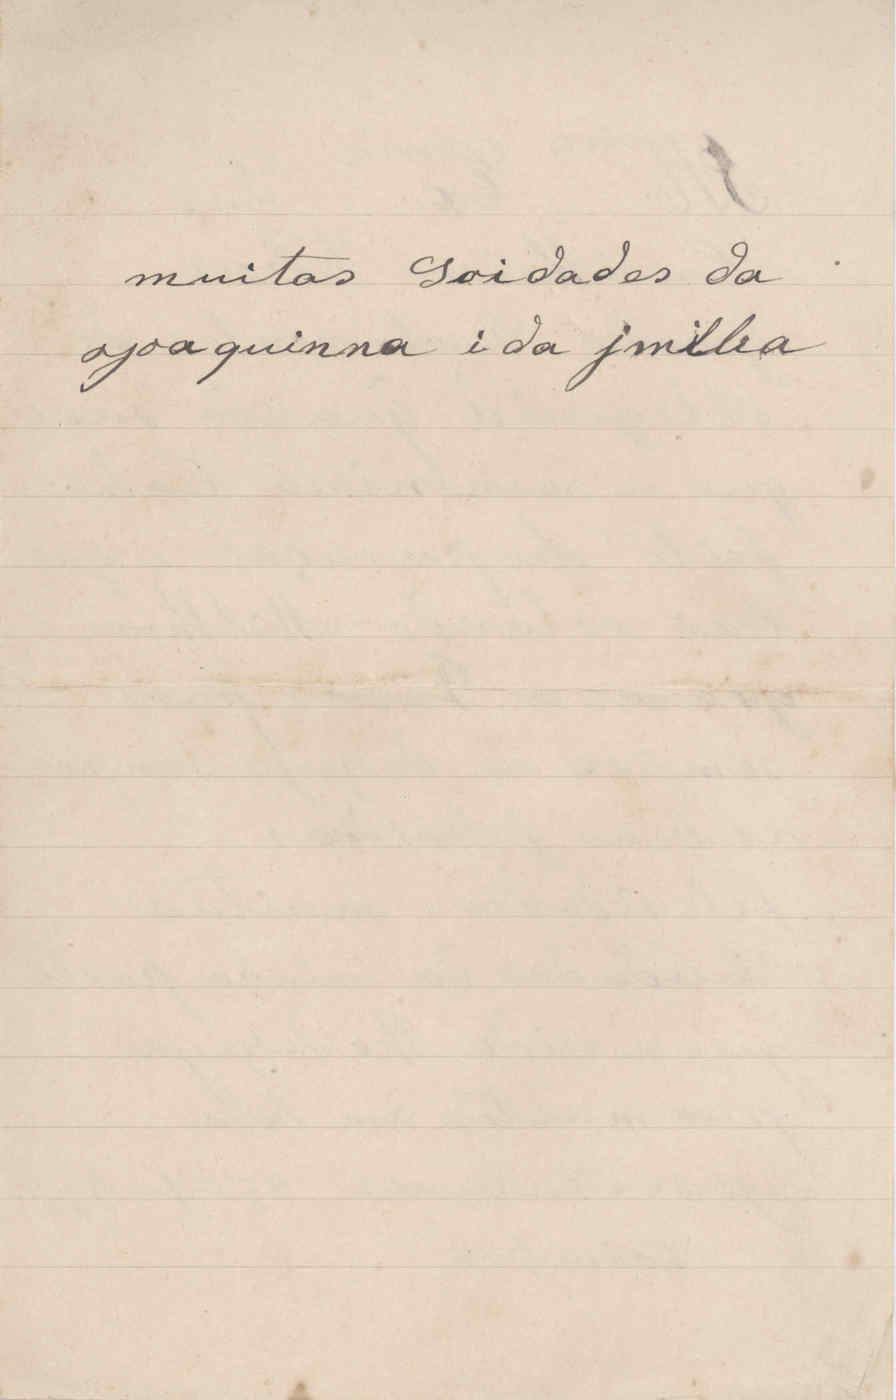 muitas Soidades da
Joaquinna i da jmilia